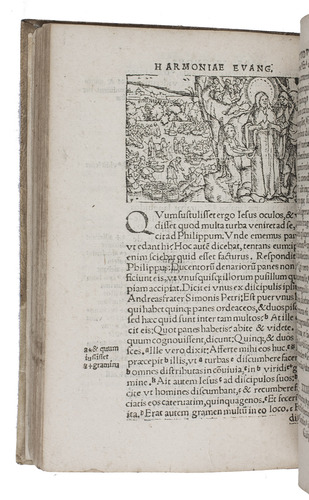 HARMONIAE EVANG.
QVum sustulisset ergo Iesus oculos, &
disset quod multa turba venire ad se,
cit ad Philippum. Vnde ememus pan
vt edant hi? Hoc autē dicebat, tentans eum: i
enim sciebat quid esset facturus. Respondit
Philippus: Ducentorū denariorū panes non
ciūt eis, vt vnusquisq; illorum pusillum qu
piam accipiat. Dicit ei vnus ex discipulis ipsi
Andreas frater Simonis Petri: Est puer vnus h
qui habet quinq; panes ordeaceos, & duos pi
sed hæc quid sunt inter tam multos? At ille
cit eis: Quot panes habetis? abite & videte.
quum cognouissent, dicunt: Quinq;, & duos
sces. Ille vero dixit: Afferte mihi eos huc,
præcepit illis, vt turbas discumbere facer
omnes distributas in cōuiuia, in viridi gra
mine. Ait autem Iesus ad discipulos suos:
vt homines discumbant, &
ciatis eos cateruatim, quinquagenos. Et fecer
ita. Erat autem gramen multū in eo loco. E
dis
& quum
iussisset
gramina